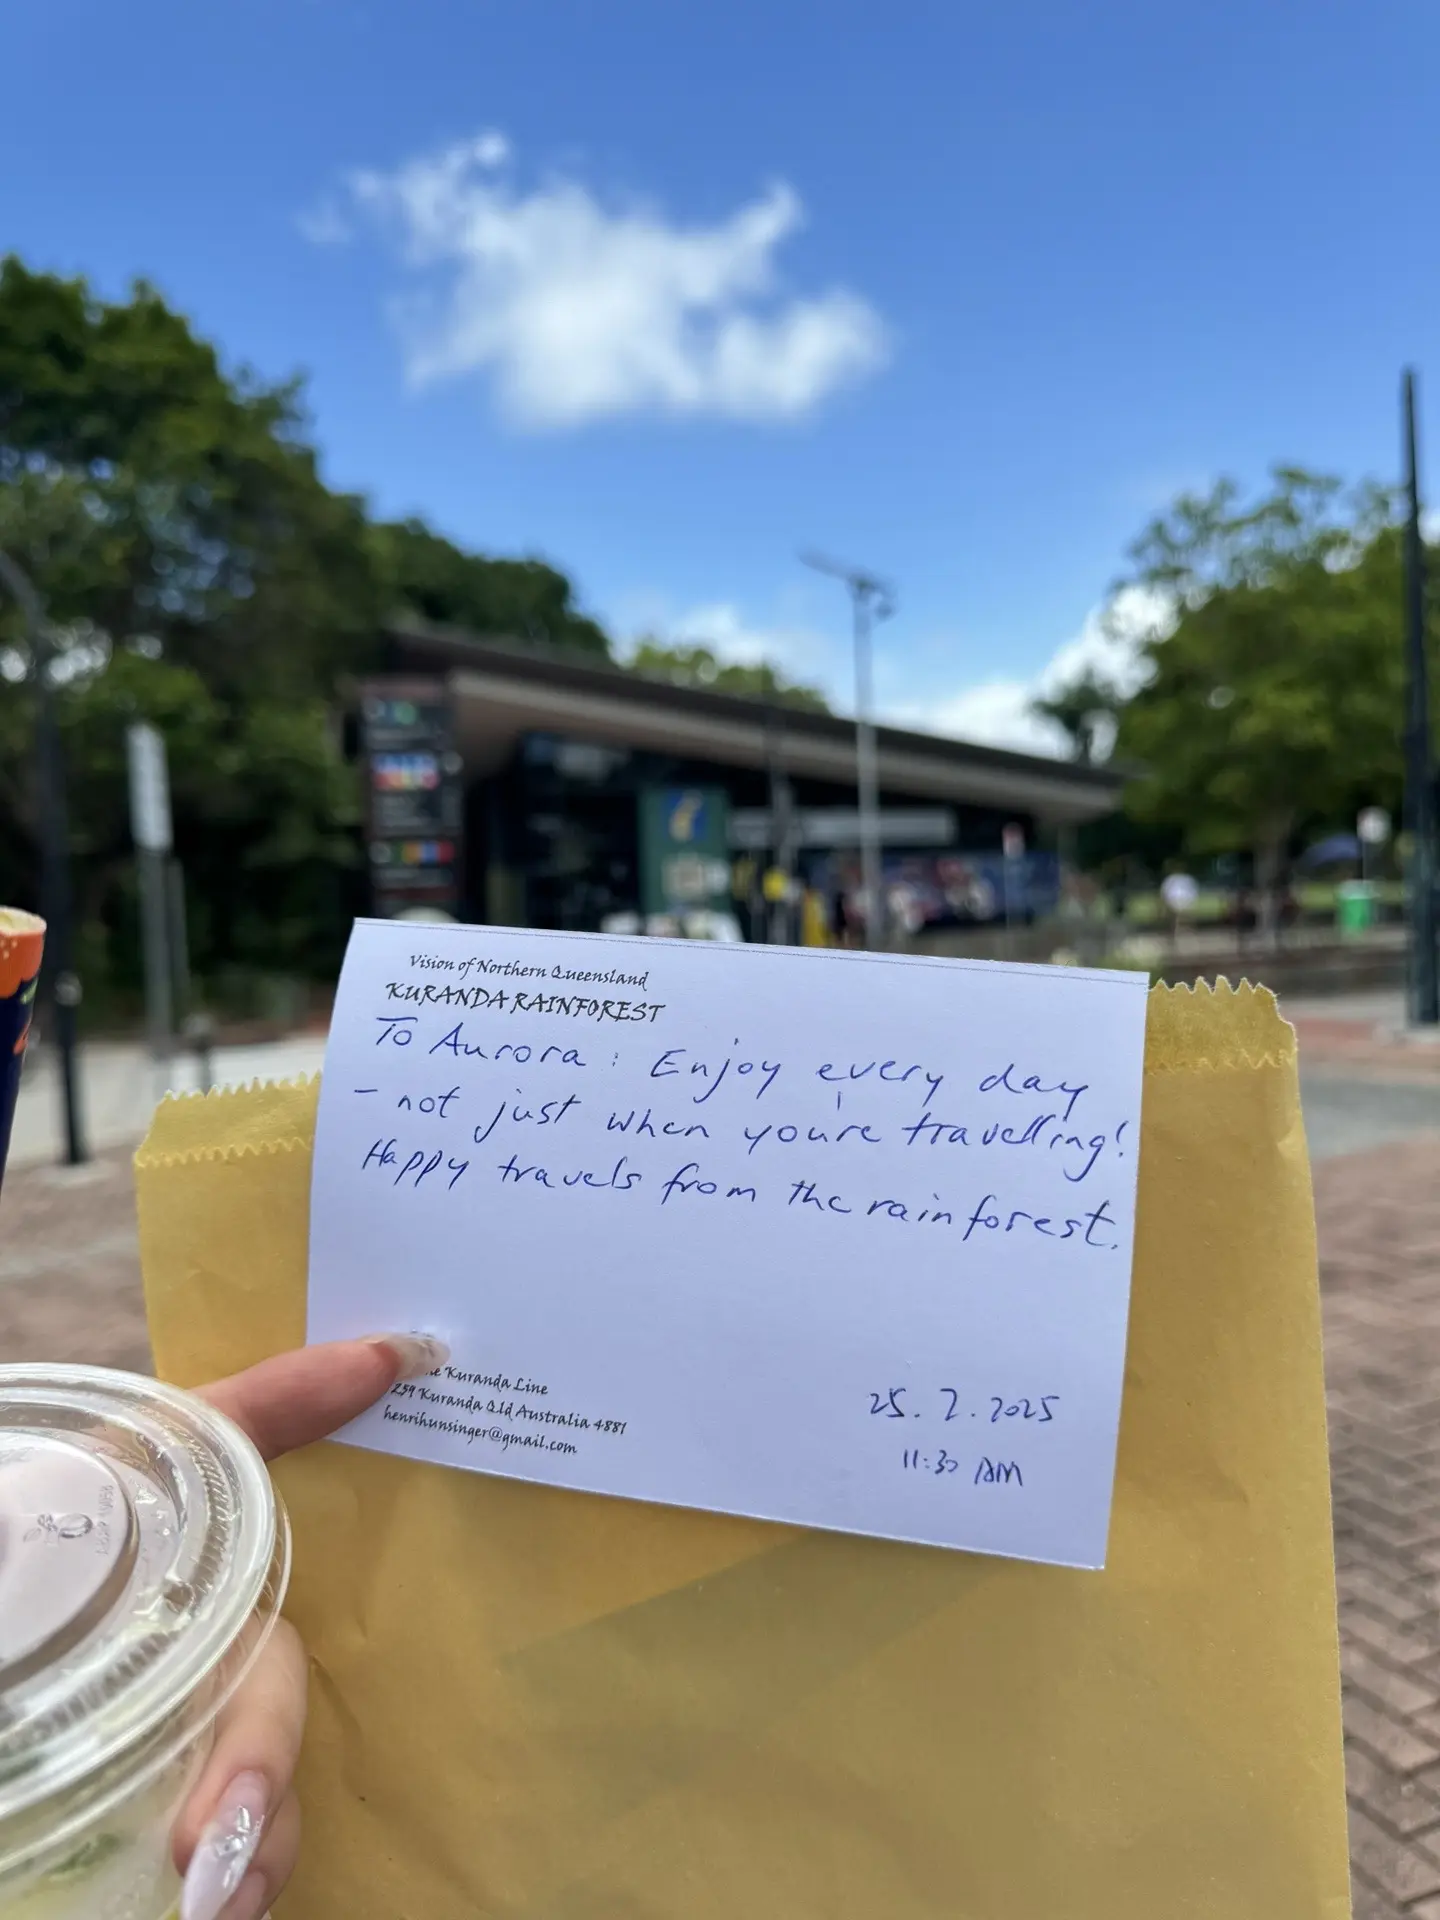 Vision of Northern Queensland
KURANDA RAINFOREST
To Aurora : Enjoy every day
- not just when you're travelling!
Happy travels from the rainforest.
Kuranda Line
259 Kuranda Qld Australia 4881
henrihunsinger@gmail.com
25. 2. 2025
11:30 AM